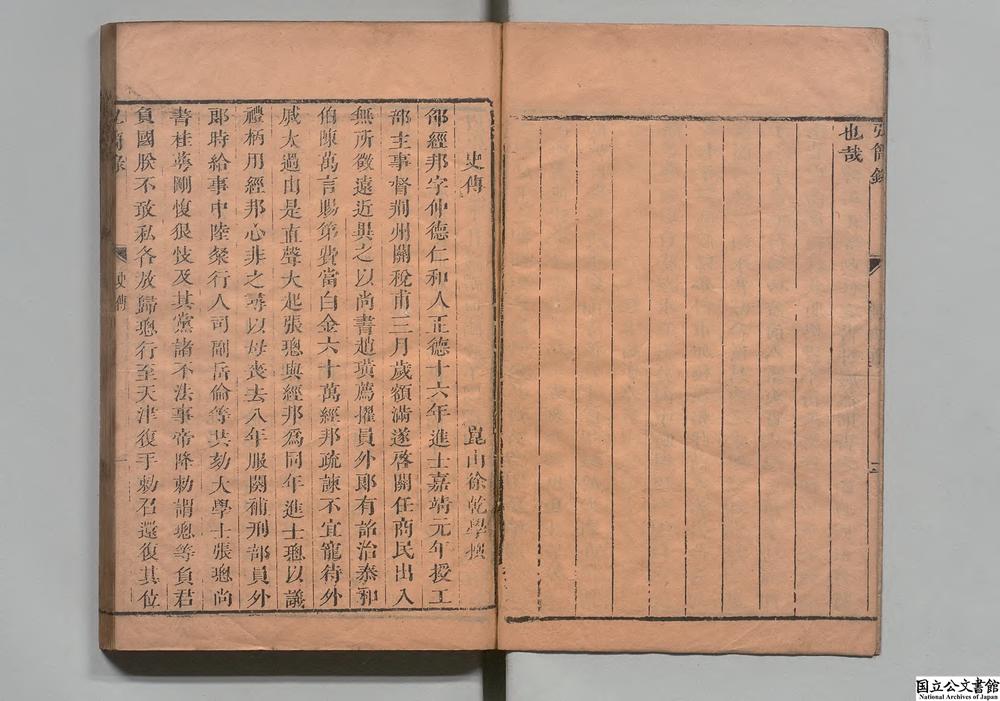 弘簡錄
也哉
史傳
崑山徐乾學撰
邵經邦字仲德仁和人正德十六年進士嘉靖元年授工
部主事督荊州關稅甫三月歲額滿遂啓關任商民出入
無所徵遠近異之以尚書趙璜薦擢員外郎有詔治泰和
伯陳萬言賜第費當白金六十萬經邦疏諫不宜寵待外
戚太過由是直聲大起張璁與經邦爲同年進士璁以議
禮柄用經邦心非之尋以母喪去八年服闋補刑部員外
郎時給事中陸粲行人司副岳倫等共劾大學士張璁尚
書桂萼剛愎狠忮及其黨諸不法事帝降勅謂璁等負君
負國朕不敢私各放歸璁行至天津復手勅召還復其位
弘簡錄
史傳
一
国立公文書館
National Archives of Japan